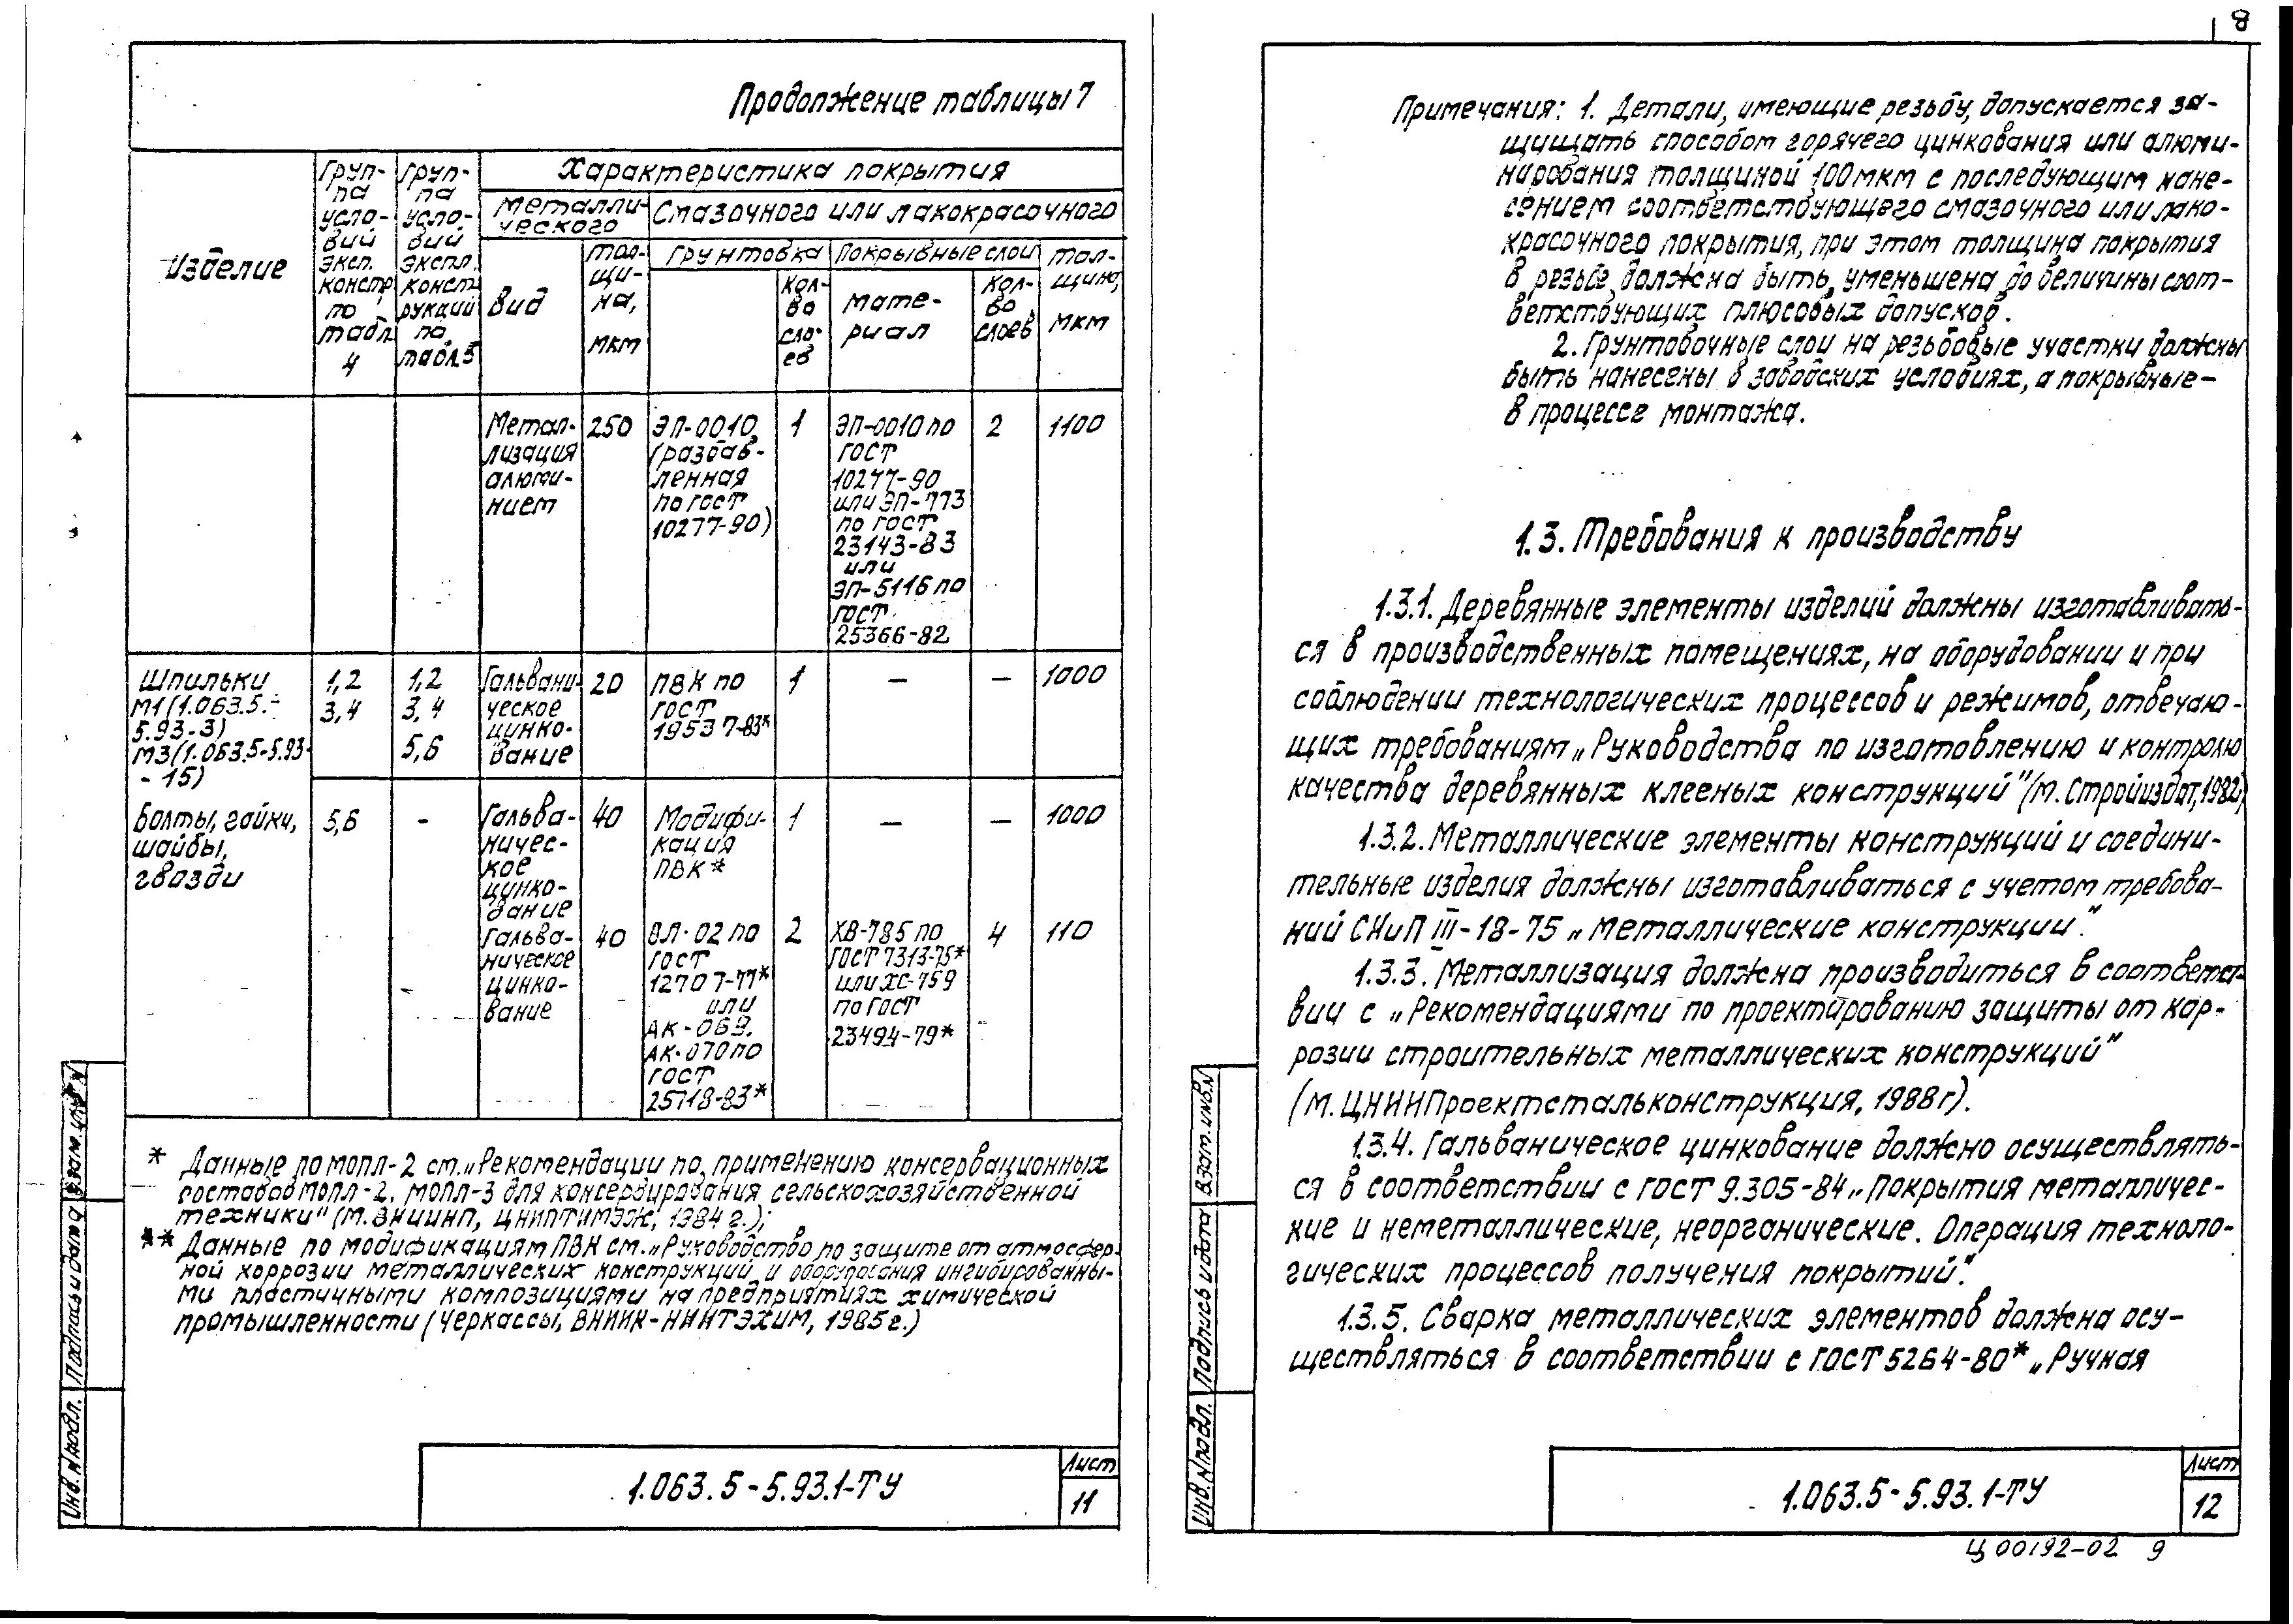 Продолжение таблицы 7
Изделие
Груп-
па
усло-
вий
эксп.
констр.
по
табл.
4
Груп-
па
усло-
вий
экспл.
конст-
рукций
по
табл.5
Характеристика покрытия
Металли-
ческого
Смазочного или лакокрасочного
Вид
тол-
щи-
на,
мкм
Грунтовка
Кол-
во
сло-
ев
Покрывные слои
мате-
риал
Кол-
во
слоев
тол-
щина,
мкм
Метал-
лизация
алюми-
нием
250
ЭП-0010
(разбав-
ленная
по гост
10277-90)
1
ЭП-0010 по
гост
10277-90
или ЭП-773
по гост
23143-83
или
ЭП-5116 по
гост
25366-82
2
1100
Шпильки
М1(1.063.5.-
5.93-3)
М3(1.063.5-5.93-
-15)
1,2
3,4
1,2
3,4
5,6
Гальвани-
ческое
цинко-
вание
20
ПВК по
гост
19537-83*
1
—
—
1000
Болты, гайки,
шайбы,
гвозди
5,6
-
Гальва-
ничес-
кое
цинко-
вание
40
Модифи-
кация
ПВК*
1
—
—
1000
Гальва-
ническое
цинко-
вание
40
ВЛ-02 по
гост
12707-77*
или
АК-069.
АК-070 по
гост
25718-83*
2
ХВ-785 по
гост 7313-75*
или ХС-759
по гост
23494-79*
4
110
* Данные по мопл-2 ст. „Рекомендации по применению консервационных
составов мопл-2, мопл-3 для консервирования сельскохозяйственной
техники" (М. ВНИИНП, ЦНИПТИМЭЖ, 1984 г.);
** Данные по модификациям ПВК см. „Руководство по защите от атмосфер-
ной коррозии металлических конструкций и оборудования ингибированны-
ми пластичными композициями на предприятиях химической
промышленности (Черкассы, ВНИИК-НИИТЭХИМ, 1985 г.)
Инв. № подл.
Подпись и дата
Взам. инв. №
1.063.5-5.93.1-ТУ
Лист
11
8
Примечания: 1. Детали, имеющие резьбу, допускается за-
щищать способом горячего цинкования или алюми-
нирования толщиной 100 мкм с последующим нане-
сением соответствующего смазочного или лако-
красочного покрытия, при этом толщина покрытия
в резьбе должна быть уменьшена до величины соот-
ветствующих плюсовых допусков.
2. Грунтовочные слои на резьбовые участки должны
быть нанесены в заводских условиях, а покрывные —
в процессе монтажа.
1.3. Требования к производству
1.3.1. Деревянные элементы изделий должны изготавливать-
ся в производственных помещениях, на оборудовании и при
соблюдении технологических процессов и режимов, отвечаю-
щих требованиям „Руководства по изготовлению и контролю
качества деревянных клееных конструкций" (М. Стройиздат, 1982)
1.3.2. Металлические элементы конструкций и соедини-
тельные изделия должны изготавливаться с учетом требова-
ний СНиП III-18-75 „Металлические конструкции".
1.3.3. Металлизация должна производиться в соответст-
вии с „Рекомендациями по проектированию защиты от кор-
розии строительных металлических конструкций"
(М. ЦНИИПроектстальконструкция, 1988г).
1.3.4. Гальваническое цинкование должно осуществлять-
ся в соответствии с гост 9.305-84 „Покрытия металличес-
кие и неметаллические, неорганические. Операция техноло-
гических процессов получения покрытий".
1.3.5. Сварка металлических элементов должна осу-
ществляться в соответствии с гост 5264-80* „Ручная
Инв. № подл.
Подпись и дата
Взам. инв. №
1.063.5-5.93.1-ТУ
Лист
12
Ц 00192-02 9